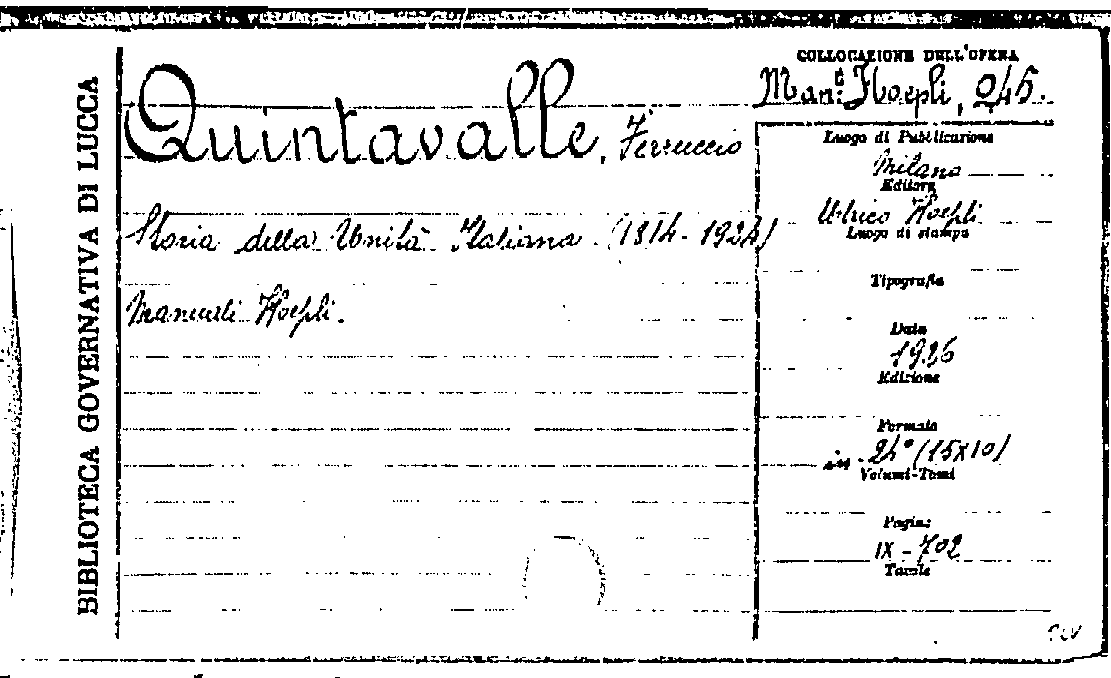 BIBLIOTECA GOVERNATIVA DI LUCCA
Quintavalle, Ferruccio
Storia della Unità Italiana (1814-1924)
Manuali Hoepli.
COLLOCAZIONE DELL'OPERA
Man.ⁱ Hoepli, 045.
Luogo di Publicazione
Milano
Editore
Ulrico Hoepli
Luogo di stampa
Tipografia
Data
1926
Edizione
Formato
in-24° (15x10)
Volumi-Tomi
Pagine
IX-702
Tavole